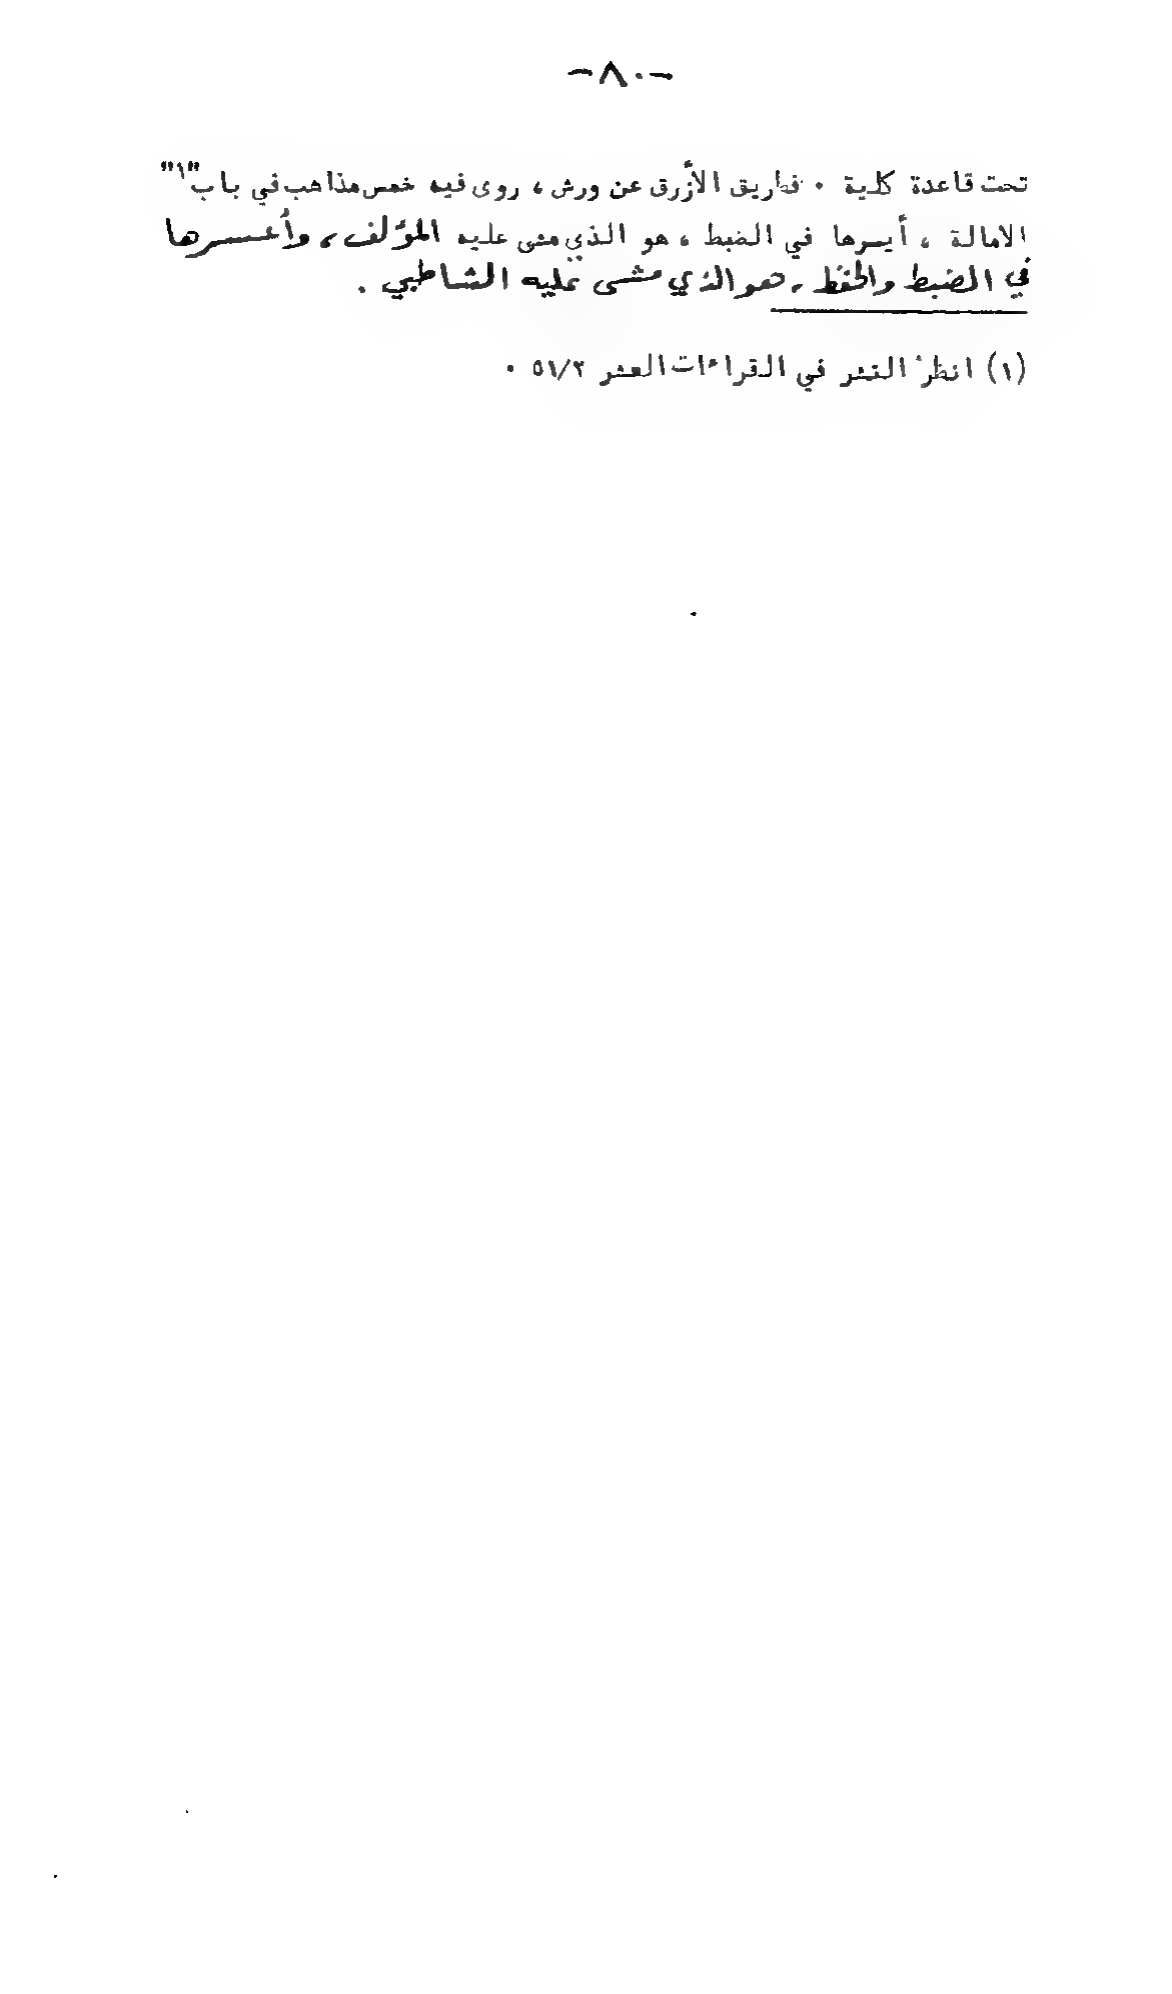 -٨٠-
تحت قاعدة كلية . فطريق الأزرق عن ورش ، روى فيه خمس مذاهب في باب "١"
الامالة ، أيسرها في الضبط ، هو الذي مشى عليه المؤلف ، وأعسرها
في الضبط والحفظ ، هو الذي مشى عليه الشاطبي .
(١) انظر النشر في القراءات العشر ٥١/٢ .